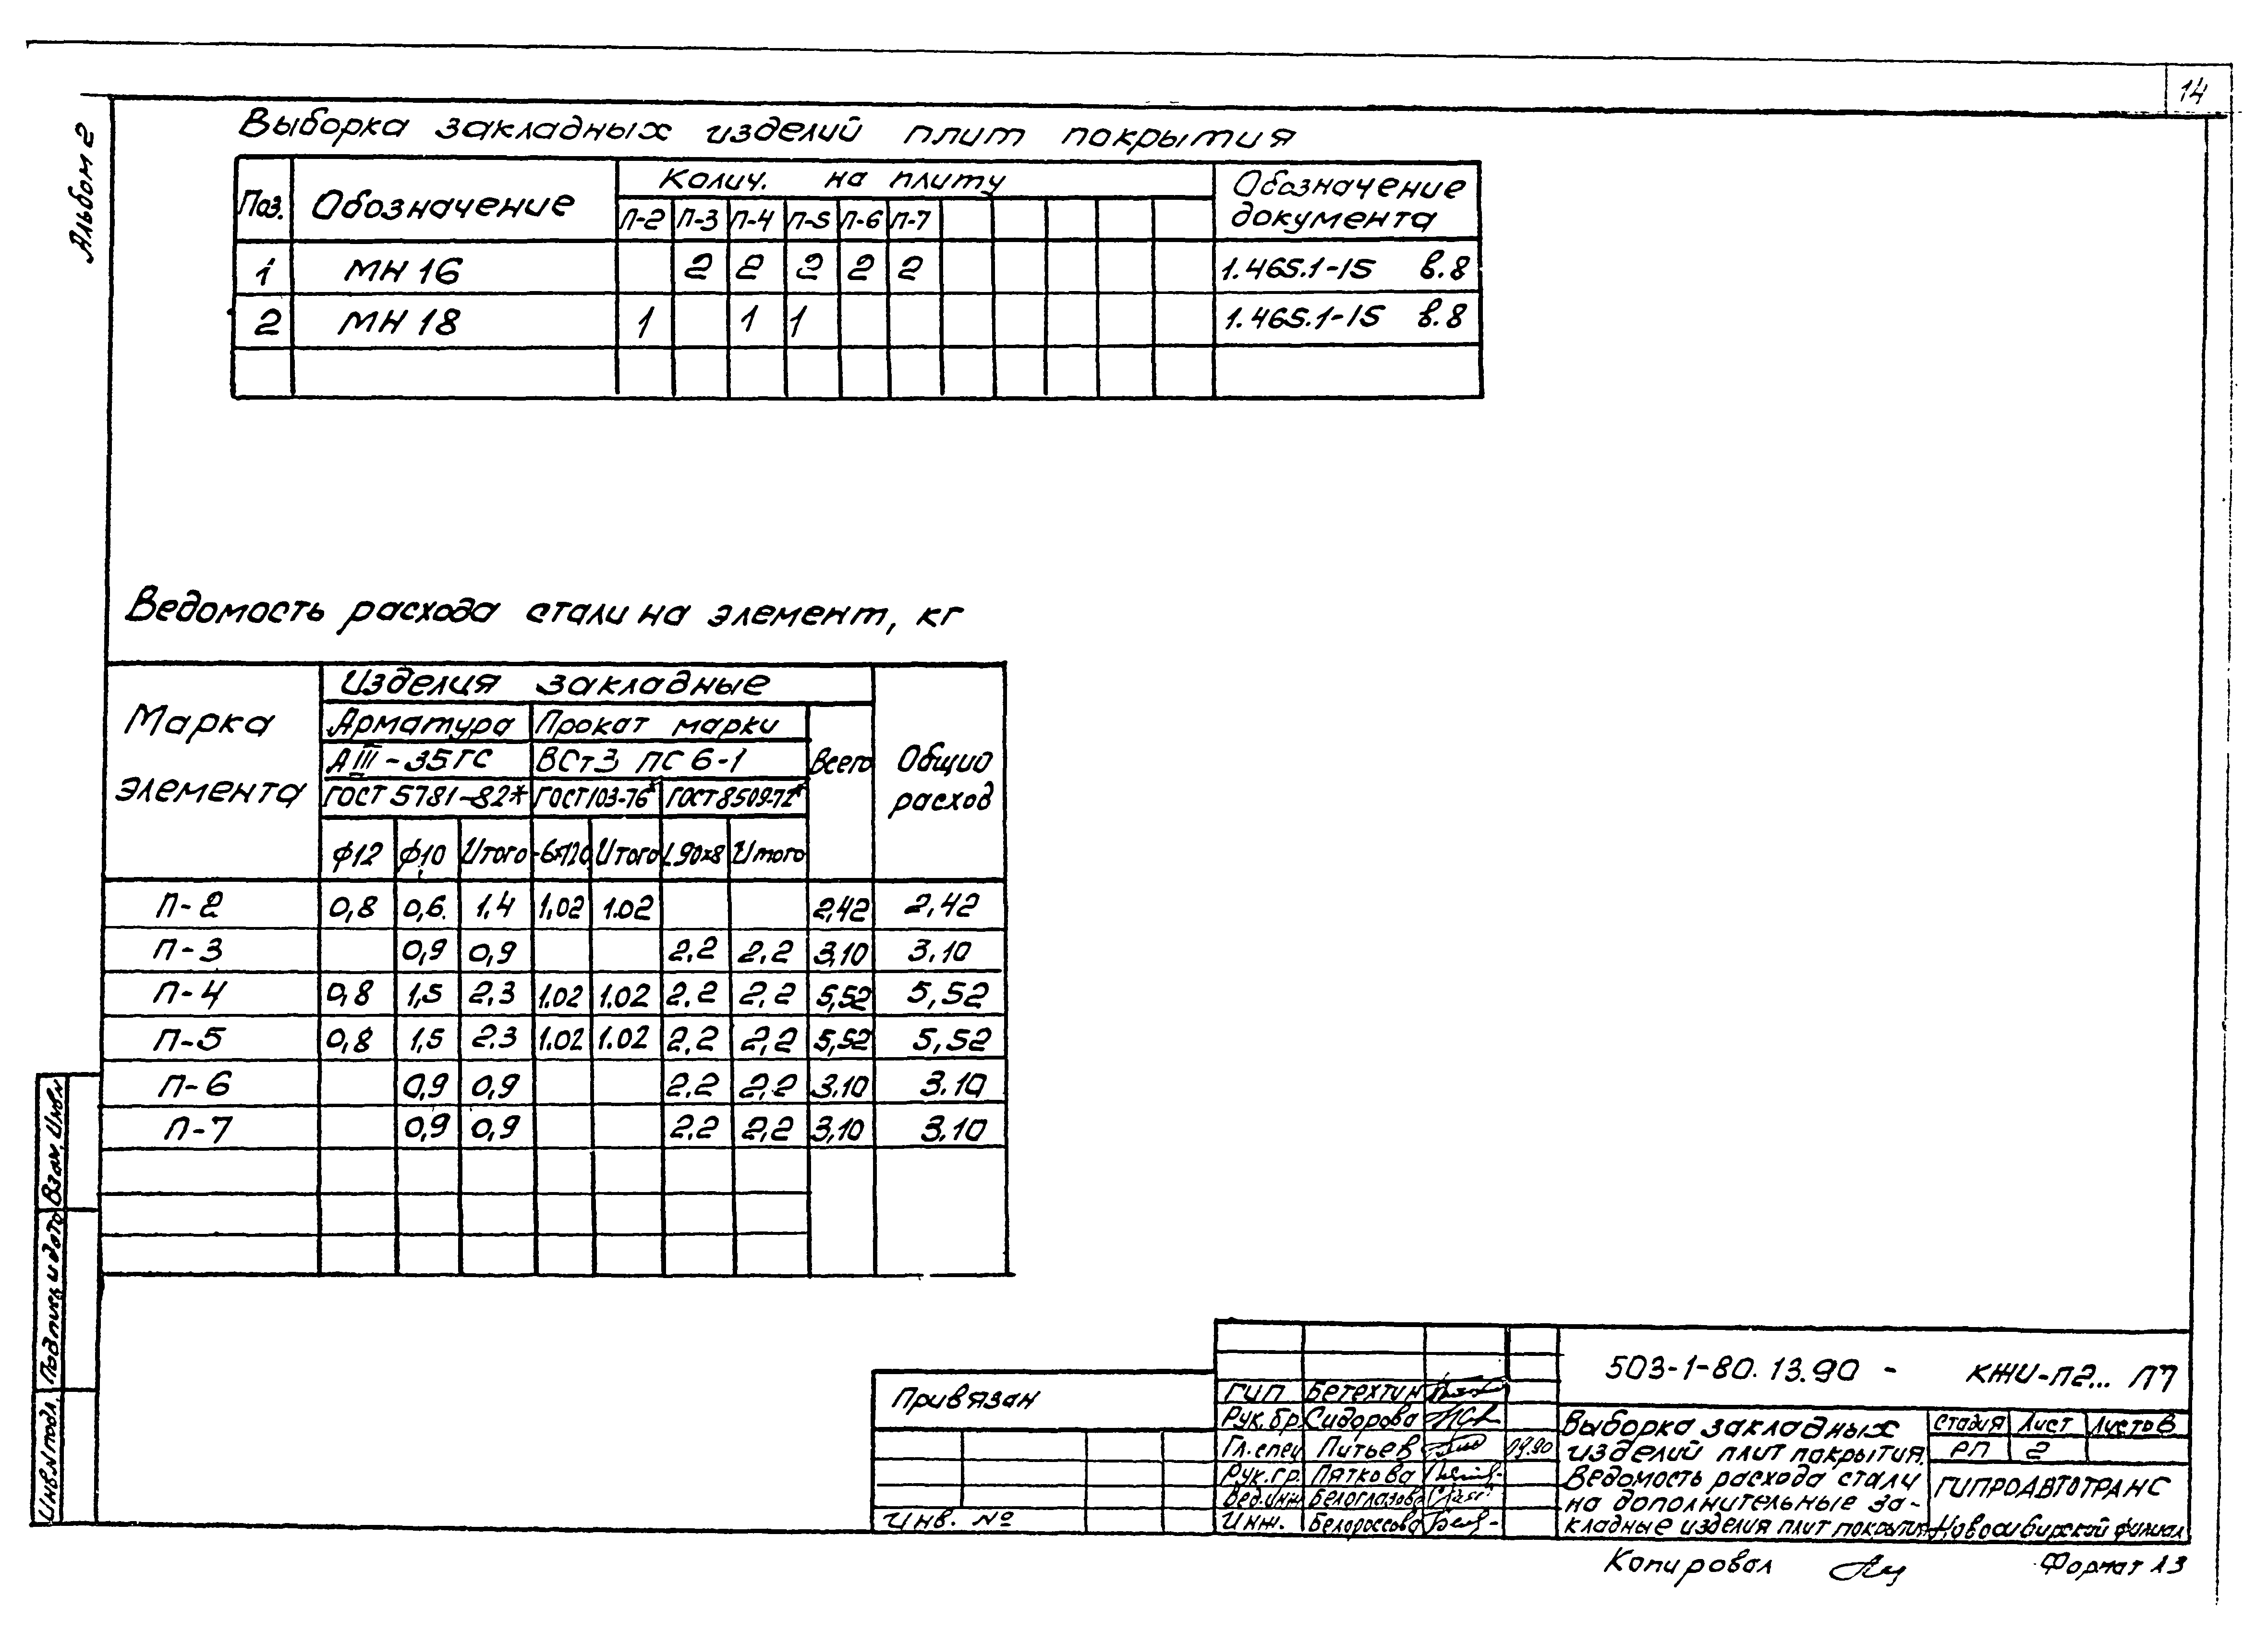 14
Альбом 2
Выборка закладных изделий плит покрытия
Поз. Обозначение Колич. на плиту Обозначение документа
П-2 П-3 П-4 П-5 П-6 П-7
1 МН 16 2 2 2 2 2 1.465.1-15 в.8
2 МН 18 1 1 1 1.465.1-15 в.8
Ведомость расхода стали на элемент, кг
Марка элемента Изделия закладные Общий расход
Арматура Прокат марки Всего
АIII-35ГС ВСт3 ПС 6-1
ГОСТ 5781-82* ГОСТ 103-76* ГОСТ 8509-72*
ф12 ф10 Итого -6×120 Итого L90×8 Итого
П-2 0,8 0,6 1,4 1,02 1.02 2,42 2,42
П-3 0,9 0,9 2.2 2,2 3,10 3.10
П-4 0,8 1,5 2.3 1.02 1.02 2.2 2,2 5,52 5,52
П-5 0,8 1,5 2.3 1.02 1.02 2.2 2,2 5,52 5,52
П-6 0,9 0,9 2.2 2,2 3.10 3.10
П-7 0,9 0,9 2.2 2,2 3,10 3.10
Взам. Инв.N
Подпись и дата
Инв.N подл.
Привязан
Инв. №
503-1-80.13.90 - КЖИ-П2... П7
ГИП Бетехтин
Рук.бр. Сидорова
Гл.спец Питьев 09.90
Рук.гр. Пяткова
Вед.инж Белоглазова
Инж. Белороссова
Выборка закладных
изделий плит покрытия.
Ведомость расхода стали
на дополнительные за-
кладные изделия плит покрытия
Стадия Лист Листов
РП 2
ГИПРОАВТОТРАНС
Новосибирский филиал
Копировал
Формат А3